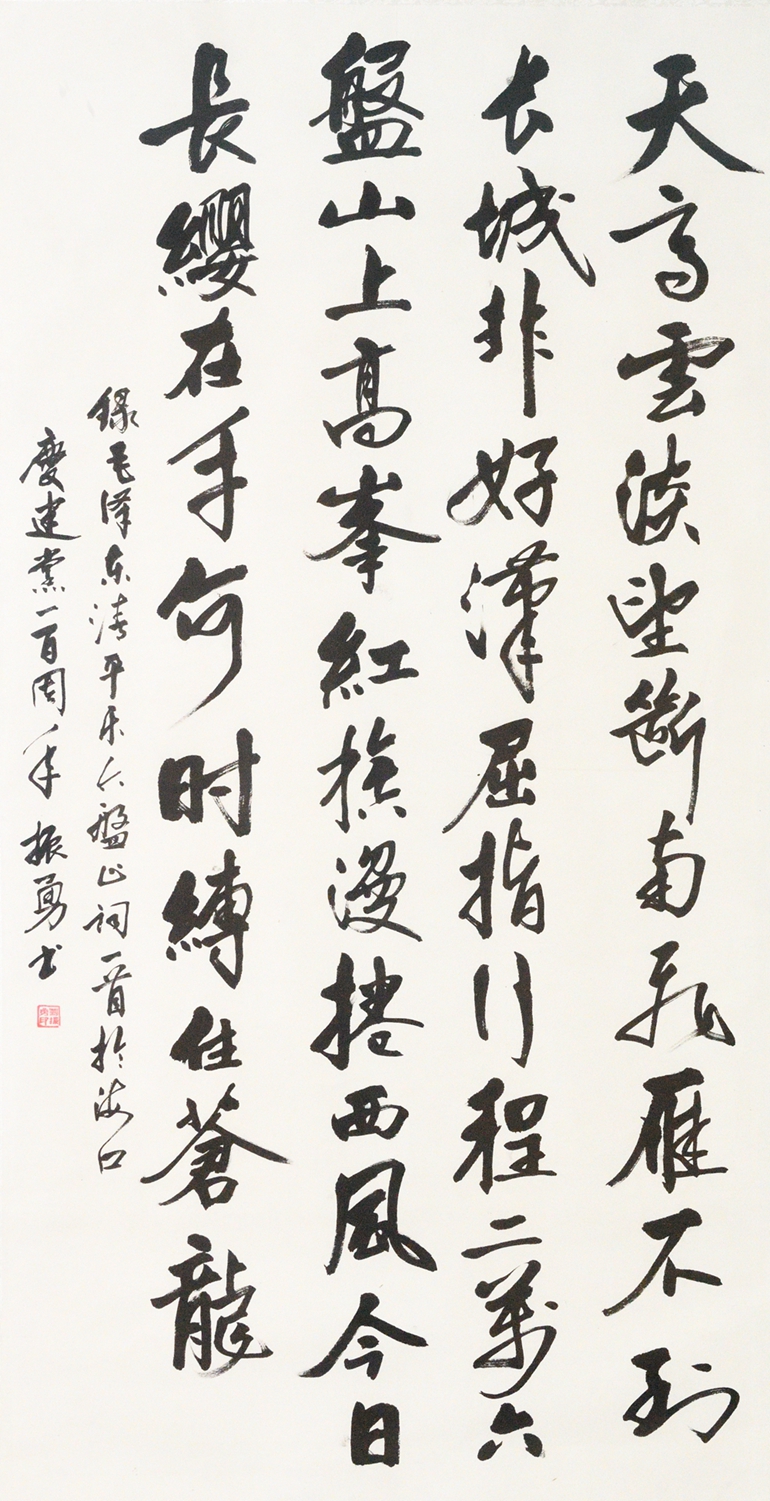 天高雲淡望斷南飛雁不到
长城非好漢屈指行程二萬六
盤山上高峯紅旗漫捲西風今日
長纓在手何时縛住蒼龍
録毛泽东清平乐六盤山词一首於海口
慶建黨一百周年振勇书